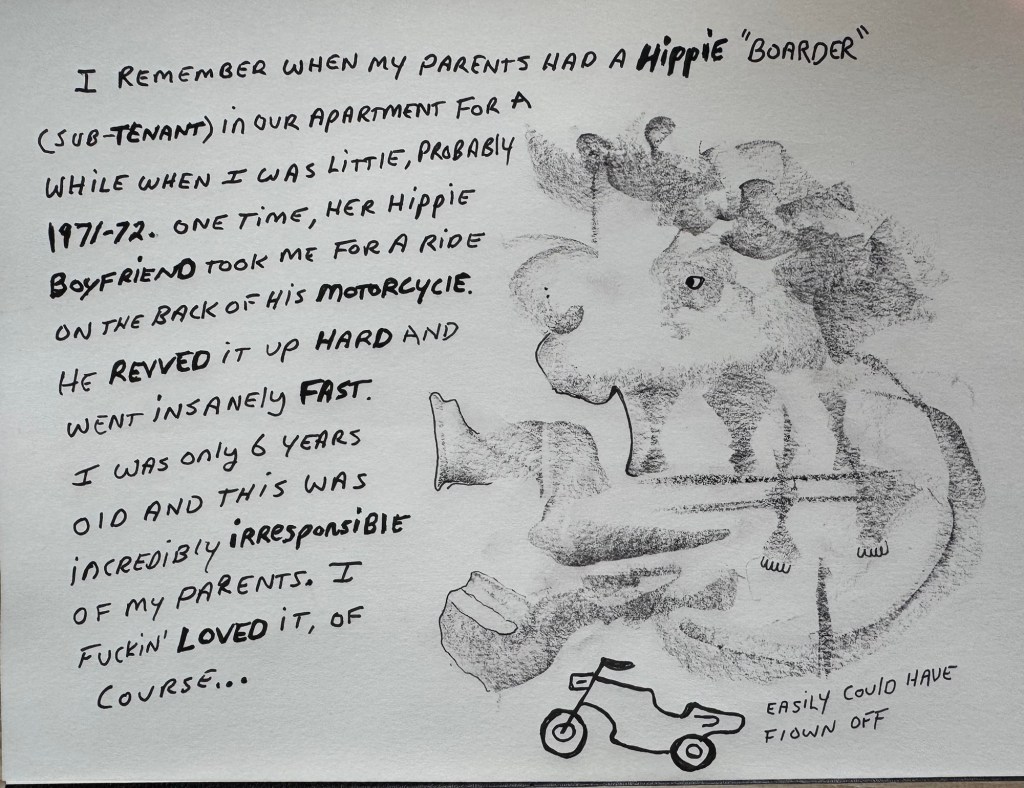 I REMEMBER WHEN MY PARENTS HAD A HiPPiE "BOARDER"
(SUB-TENANT) in OUR APARTMENT FOR A
WHILE WHEN I WAS LiTTLE, PROBABLY
1971-72. ONE TiME, HER HiPPiE
BOYFRiEND TOOK ME FOR A RiDE
ON THE BACK OF HiS MOTORCYCLE.
HE REVVED iT UP HARD AND
WENT iNSANELY FAST.
I WAS ONLY 6 YEARS
OLD AND THiS WAS
iNCREDiBLY iRRESPONSiBLE
OF MY PARENTS. I
FUCKiN' LOVED iT, OF
COURSE...
EASiLY COULD HAVE
FLOWN OFF